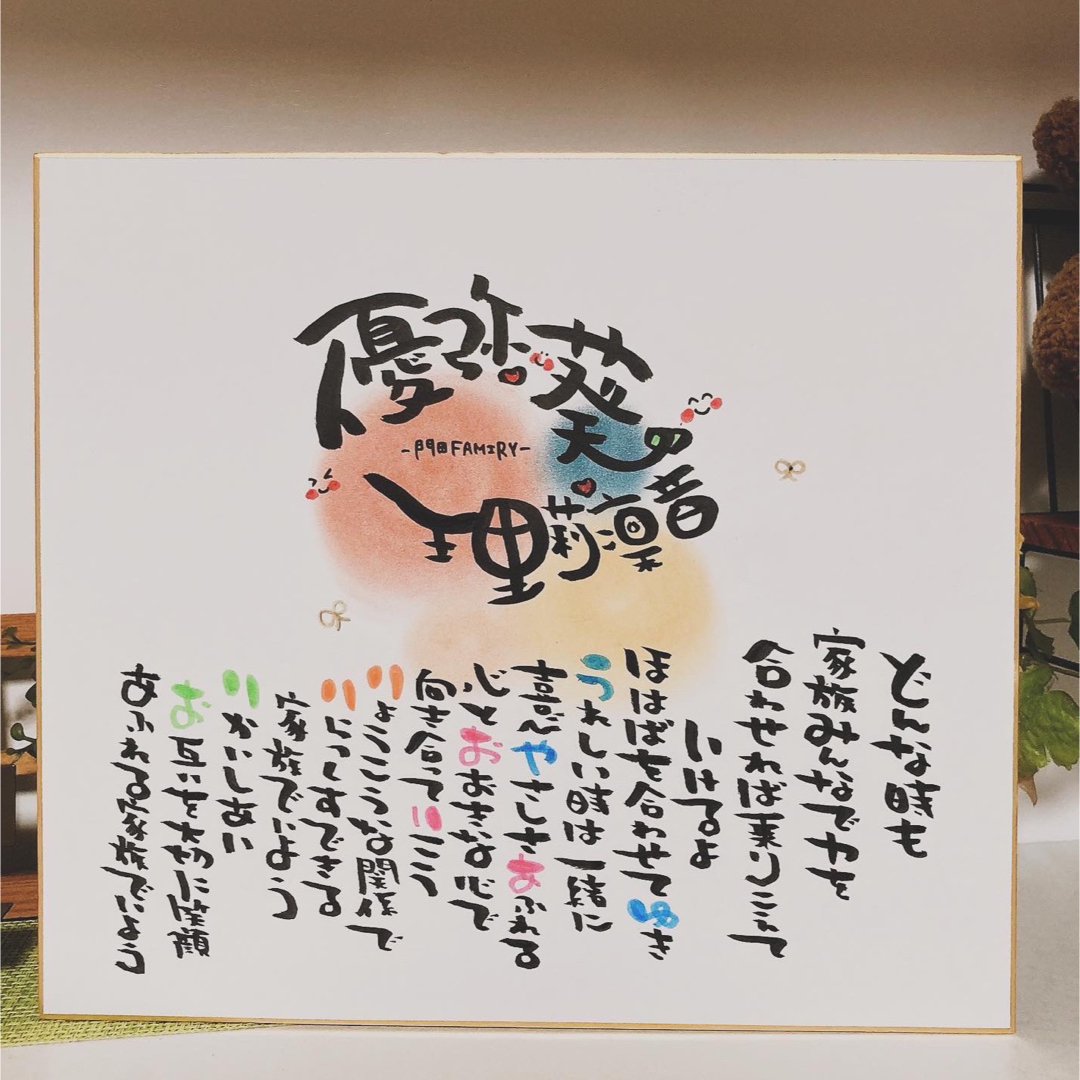 優弥葵の
-門田FAMIRY-
理莉凛音
どんな時も
家族みんなで力を
合わせれば乗りこえて
いけるよ
ほはばを合わせてゆき
うれしい時は一緒に
喜びやさしさあふれる
心とおおきな心で
向き合っていこう
りょうこうな関係で
りらっくすできる
家族でいよう
りかいしあい
お互いを大切に笑顔
あふれる家族でいよう